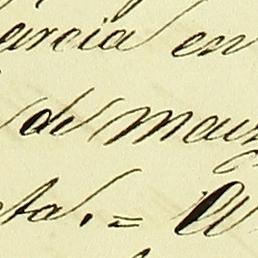 arcia en
de maiz
ta. = A